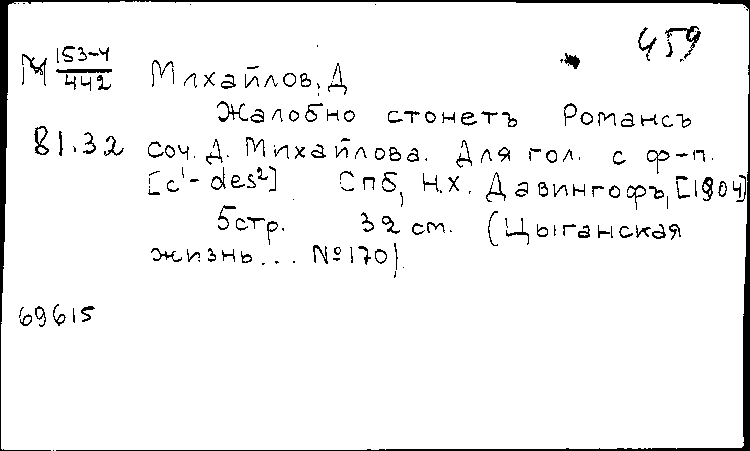 459
М 153-4/442 Михайлов, Д
Жалобно стонетъ Романсъ
81.32 соч. Д. Михайлова. Для гол. с ф-п.
[c¹- des²] Спб, Н.Х. Давингофъ, [1904]
5стр. 32 см. (Цыганская
жизнь... №170)
69615